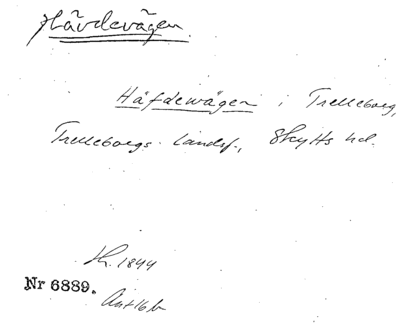 Hävdevägen.
Häfdewägen i Trelleborg,
Trelleborgs landsf., Skytts hd.
1844
Nr 6889.